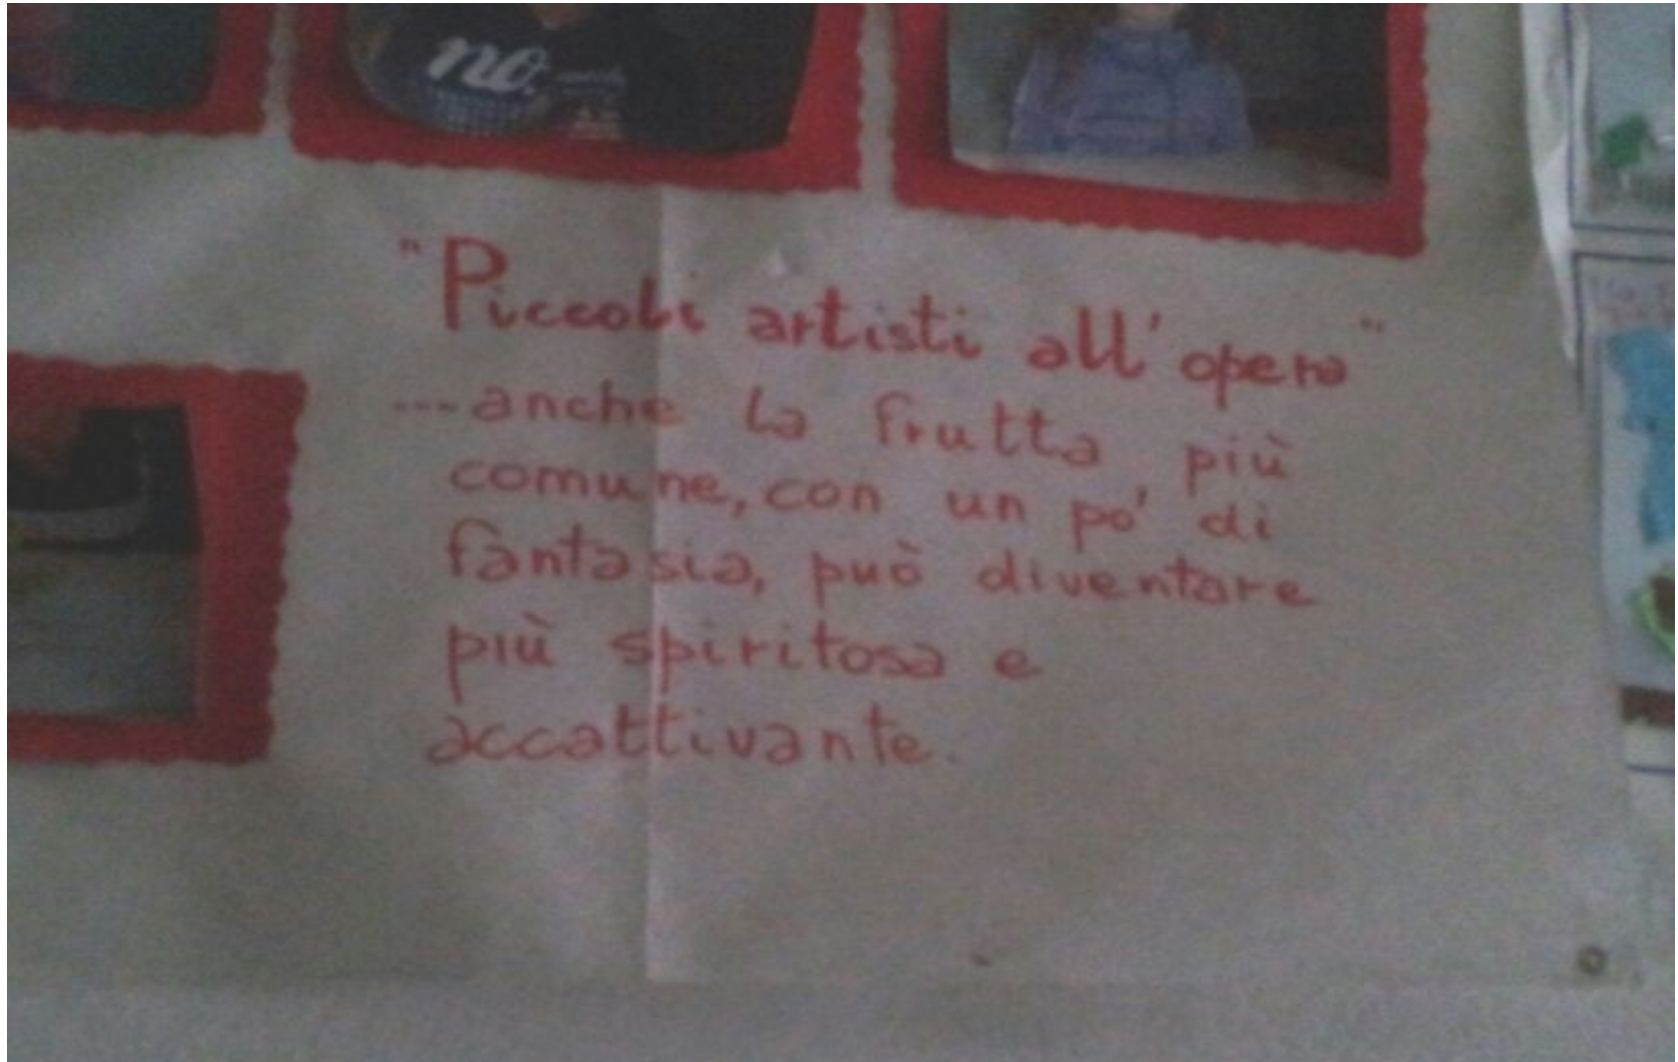 no.
"Piccoli artisti all'opera"
...anche la frutta più
comune, con un po' di
fantasia, può diventare
più spiritosa e
accattivante.